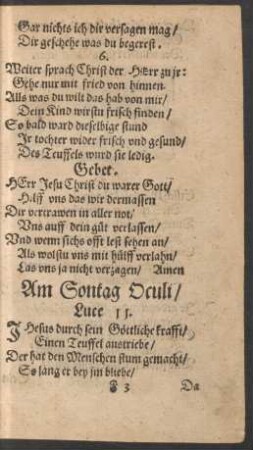 Gar nichts ich dir versagen mag/
Dir geschehe was du begerest.
6.
Weiter sprach Christ der HErr zu jr:
Gehe nur mit fried von hinnen.
Alls was du wilt das hab von mir/
Dein Kind wirstu frisch finden/
So bald ward dieselbige stund
Jr tochter wider frisch vnd gesund/
Des Teuffels wurd sie ledig.
Gebet.
HErr Jesu Christ du warer Gott/
Hilff vns das wir dermassen
Dir vertrawen in aller not/
Vns auff dein güt verlassen/
Vnd wenn sichs offt lest sehen an/
Als wolstu vns mit hülff verlahn/
Las vns ja nicht verzagen/ Amen
Am Sontag Oculi/
Luce 11.
JHesus durch sein Göttliche krafft/
Einen Teuffel austriebe/
Der hat den Menschen stum gemacht/
So lang er bey jm bliebe/
3 Da